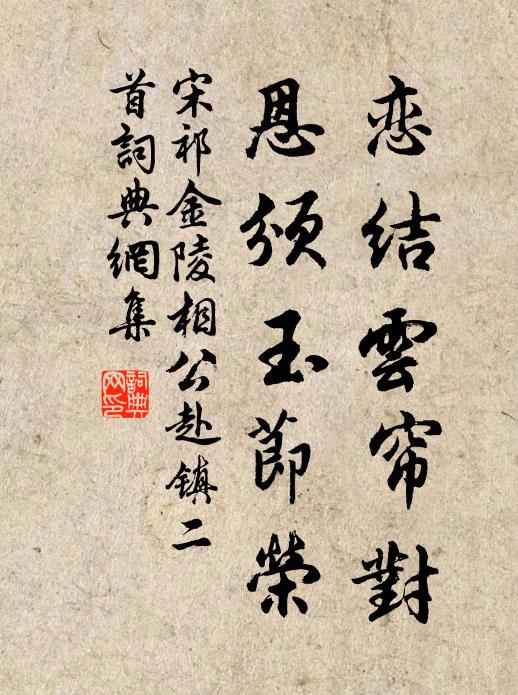 恋结雲帘對
恩颁玉節榮
宋祁金陵相公赴镇二
首詞典網集
詞典
网印